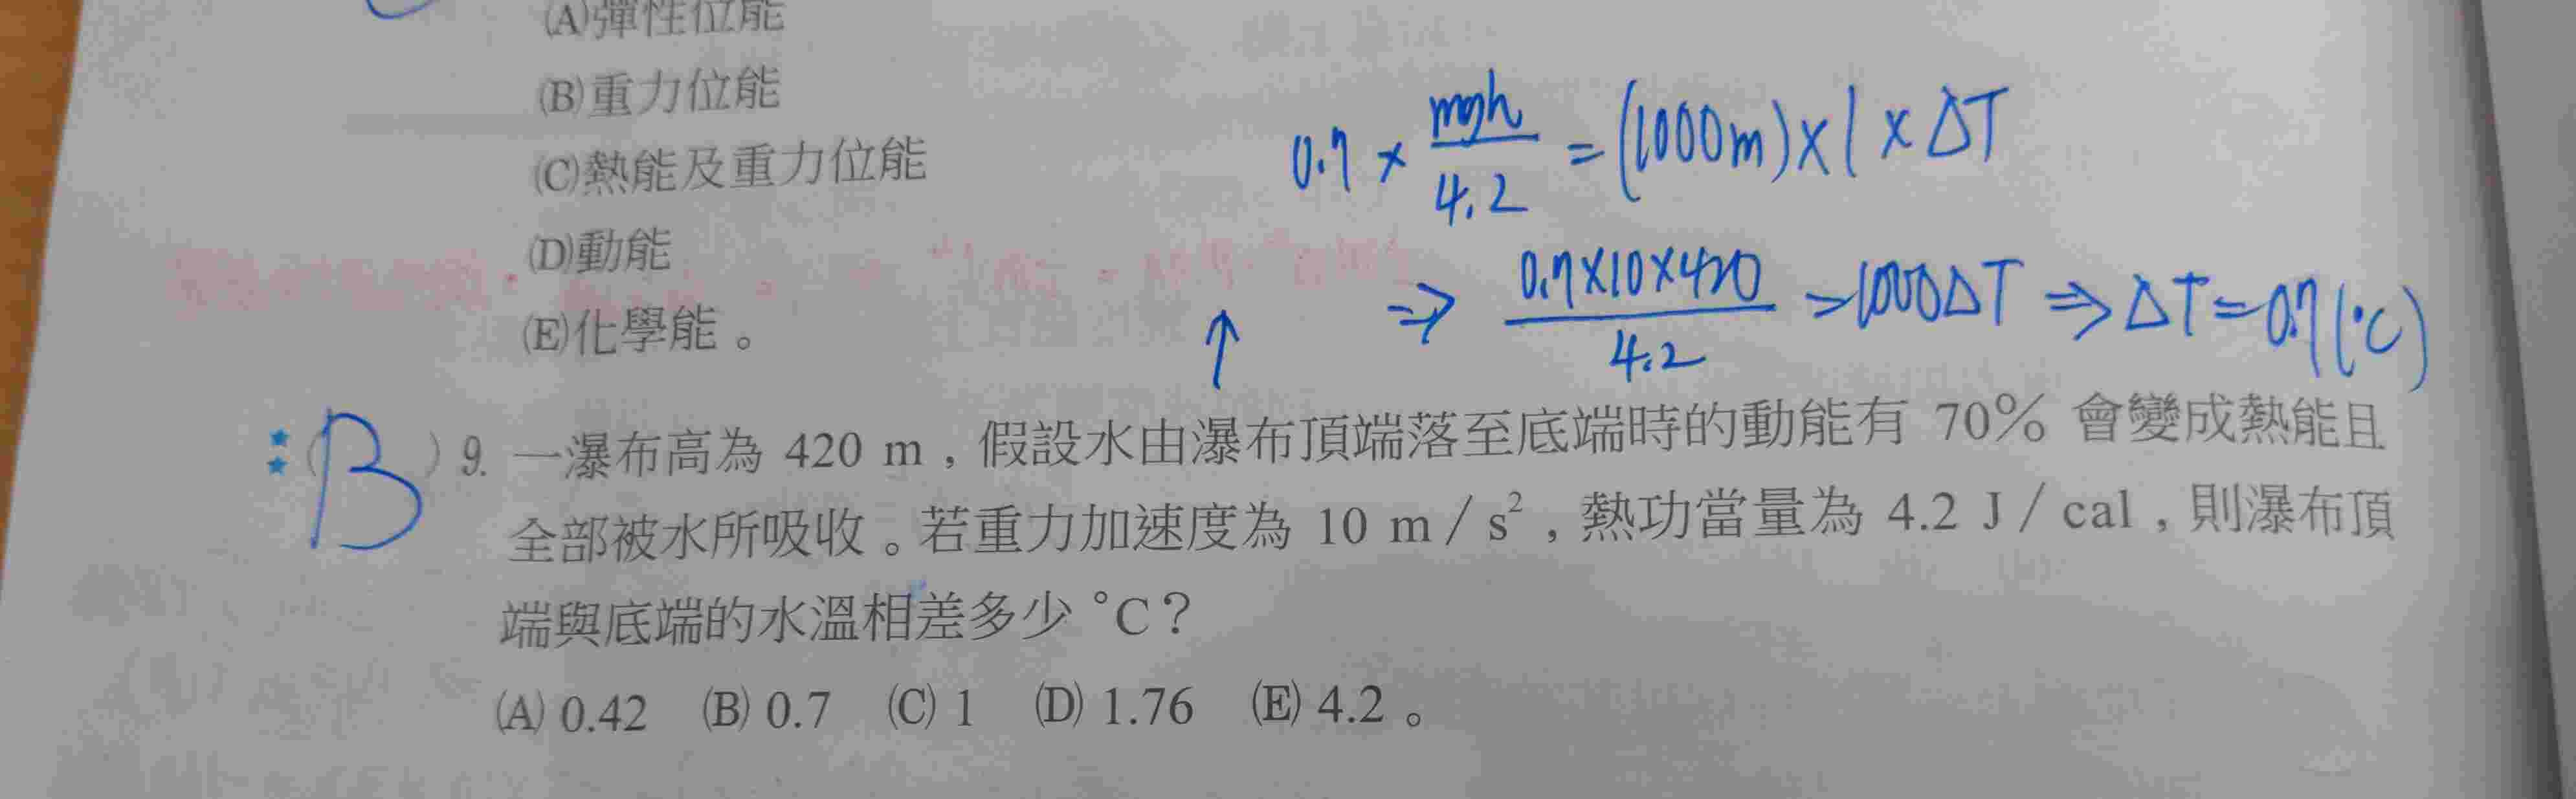 (A)彈性位能
(B)重力位能
(C)熱能及重力位能
(D)動能
(E)化學能。
0.7 × mgh/4.2 = (1000m) × 1 × ΔT
⇒ 0.7×10×420/4.2 = 1000ΔT ⇒ ΔT = 0.7(°C)
↑
(B) 9. 一瀑布高為 420 m，假設水由瀑布頂端落至底端時的動能有 70% 會變成熱能且
全部被水所吸收。若重力加速度為 10 m/s²，熱功當量為 4.2 J/cal，則瀑布頂
端與底端的水溫相差多少 °C？
(A) 0.42 (B) 0.7 (C) 1 (D) 1.76 (E) 4.2。